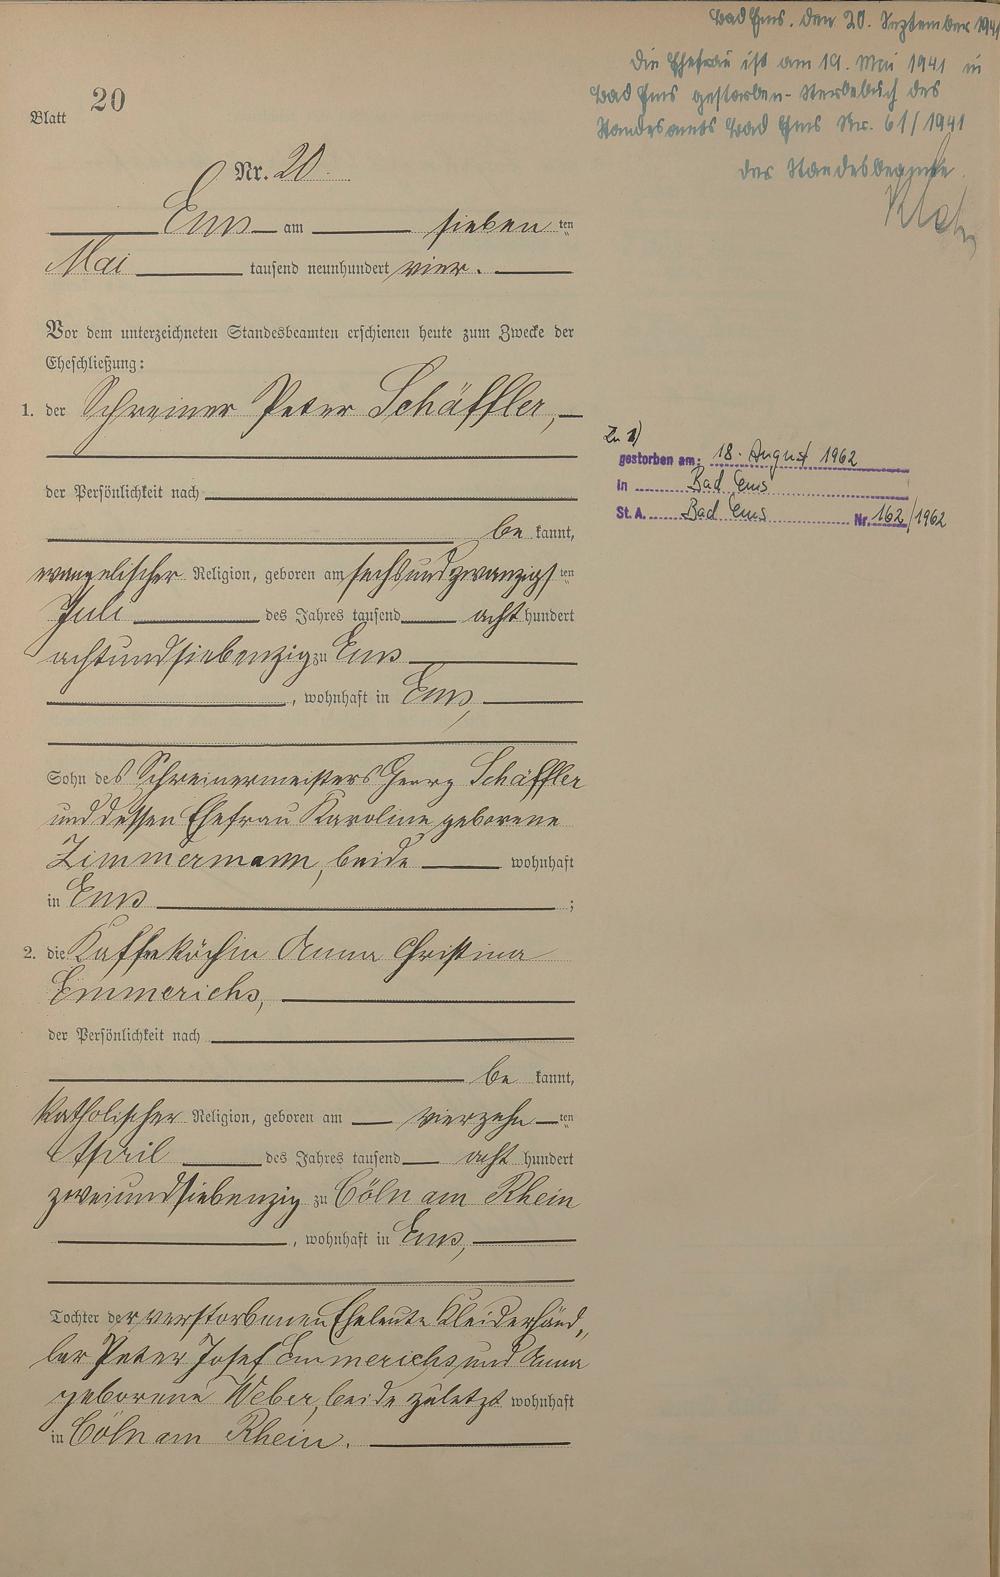 Bad Ems, den 20. September 1941
Die Ehefrau ist am 19. Mai 1941 in
Bad Ems gestorben - Sterbebuch des
Standesamts Bad Ems Nr. 61/1941
Der Standesbeamte
Blatt 20
Nr. 20.
Ems am sieben ten
Mai tausend neunhundert vier.
Vor dem unterzeichneten Standesbeamten erschienen heute zum Zwecke der
Eheschließung:
1. der Schreiner Peter Schäffler,
der Persönlichkeit nach
be kannt,
evangelischer Religion, geboren am sechsundzwanzigs ten
Juli des Jahres tausend acht hundert
achtundsiebenzig zu Ems
, wohnhaft in Ems,
Sohn des Schreinermeisters Georg Schäffler
und dessen Ehefrau Karoline geborene
Zimmermann, beide wohnhaft
in Ems ;
Zu 1)
gestorben am: 18. August 1962
in Bad Ems
St. A. Bad Ems Nr. 162/1962
2. die Kaffeeköchin Anna Christina
Emmerichs,
der Persönlichkeit nach
be kannt,
katholischer Religion, geboren am vierzehn ten
April des Jahres tausend acht hundert
zweiundsiebenzig zu Cöln am Rhein
, wohnhaft in Ems,
Tochter der verstorbenen Eheleute Kleiderhänd„
ler Peter Josef Emmerichs und Anna
geborene Weber, beide zuletzt wohnhaft
in Cöln am Rhein.